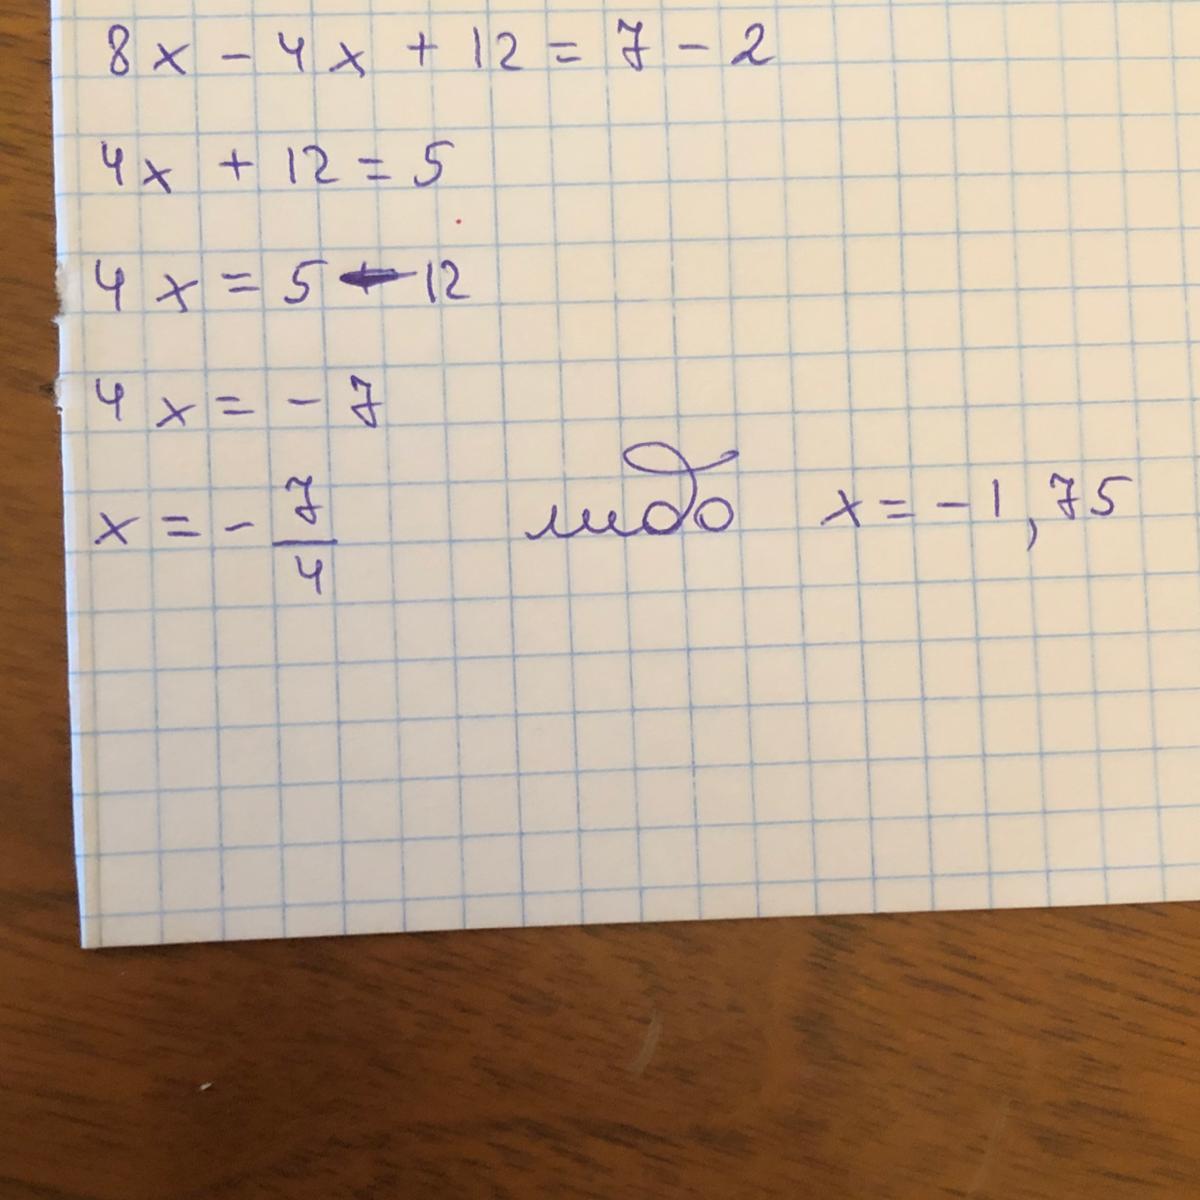 8x - 4x + 12 = 7 - 2
4x + 12 = 5
4x = 5 - 12
4x = - 7
x = - 7/4 либо x = -1,75